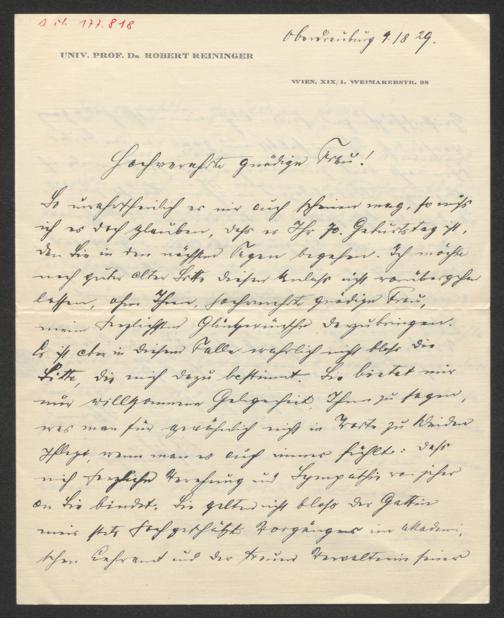 UNIV. PROF. DR. ROBERT REININGER
Oberdrauburg 9./8 29.
WIEN, XIX/1. WEIMARERSTR. 98
Hochverehrte gnädige Frau!
So unwahrscheinlich es mir auch scheinen mag, so muß
ich es doch glauben, dass es Ihr 70. Geburtstag ist,
den Sie in den nächsten Tagen begehen. Ich möchte
nach guter alter Sitte diesen Anlass nicht vorübergehen
lassen, ohne Ihnen, hochverehrte gnädige Frau,
meine herzlichsten Glückwünsche darzubringen.
Es ist aber in diesem Falle wahrlich nicht bloss die
Sitte, die mich dazu bestimmt. Sie bietet mir
nur willkommene Gelegenheit, Ihnen zu sagen,
was man für gewöhnlich nicht in Worte zu kleiden
pflegt, wenn man es auch immer fühlt: dass
mich herzliche Verehrung und Sympathie
an Sie bindet. Sie gelten nicht bloss der Gattin
meines stets hochgeschätzten Vorgängers im akademi-
schen Lehramt und der treuen Verwalterin seines